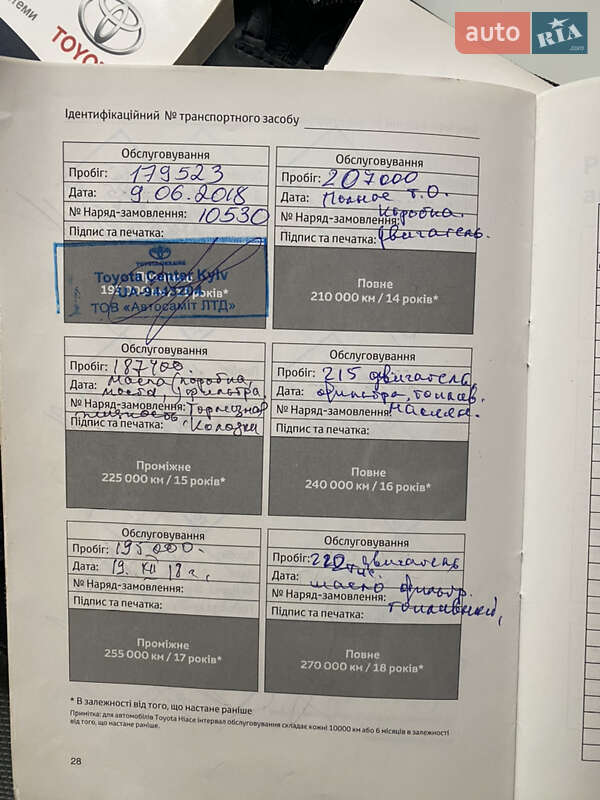 стеми
TOYO
auto RIA
.com
Ідентифікаційний № транспортного засобу
Обслуговування
Пробіг: 179523
Дата: 9.06.2018
№ Наряд-замовлення: 10530
Підпис та печатка:
TOYOTA UKRAINE
Toyota Center Kyiv
UA-9443204
ТОВ «Автосаміт ЛТД»
Обслуговування
Пробіг: 207000
Дата: Полное Т.О.
№ Наряд-замовлення: Коробка.
Підпис та печатка: двигатель.
Повне
210 000 км / 14 років*
Обслуговування
Пробіг: 187400.
Дата: масла (коробка,
моста,
№ Наряд-замовлення: Тормозная
Підпис та печатка: Колодки
Проміжне
225 000 км / 15 років*
Обслуговування
Пробіг: 215 двигатель
Дата: фильтра, топлив.
№ Наряд-замовлення: маслян.
Підпис та печатка:
Повне
240 000 км / 16 років*
Обслуговування
Пробіг: 195000.
Дата: 19. XII 18 г,
№ Наряд-замовлення:
Підпис та печатка:
Проміжне
255 000 км / 17 років*
Обслуговування
Пробіг: 220 двигатель
Дата: тыс.
№ Наряд-замовлення: масло фильтр.
Підпис та печатка: топливный,
Повне
270 000 км / 18 років*
* В залежності від того, що настане раніше
Примітка: для автомобілів Toyota Hiace інтервал обслуговування складає кожні 10000 км або 6 місяців в залежності
від того, що настане раніше.
28